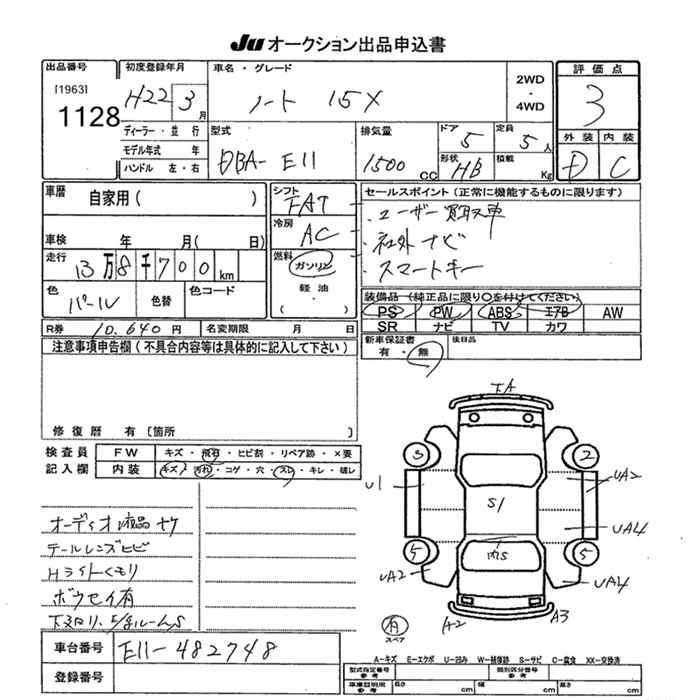 JU オークション出品申込書
出品番号
[1963]
1128
初度登録年月
H22 3月
ディーラー・並行
モデル年式 年
ハンドル 左・右
車名・グレード
ノート 15X
2WD
・
4WD
型式
DBA- E11
排気量
1500 CC
ドア 5
定員 5人
形状 HB
積載 Kg
評価点
3
外装 内装
D C
車歴 自家用( )
車検 年 月( 日)
走行 13万8千700km
色 パール
色替
色コード
シフト FAT
冷房 AC
燃料 ガソリン
・
軽油
( )
セールスポイント(正常に機能するものに限ります)
・ユーザー買取車
・社外ナビ
・スマートキー
装備品(純正品に限り○を付けてください)
PS PW ABS エアB AW
SR ナビ TV カワ
R券 10,640円 名変期限 月 日
新車保証書
有・無
後日品
注意事項申告欄(不具合内容等は具体的に記入して下さい)
修復歴 有〔箇所 〕
検査員
記入欄
FW キズ・飛石・ヒビ割・リペア跡・×要
内装 キズ・汚れ・コゲ・穴・スレ・キレ・破レ
オーディオ液晶
テールレンズヒビ
Hライトくもり
ボウセイ有
下
下A
3 2
U1 UA2
S1
UA4
5 5
UA2 UA4
A2 A3
有
スペア
車台番号 E11-482748
登録番号
A-キズ E-エクボ U-凹み W-補修跡 S-サビ C-腐食 XX-交換済
型式指定番号
参考
類別区分番号
参考
車庫証明用
参考
長さ cm
幅 cm
高さ cm